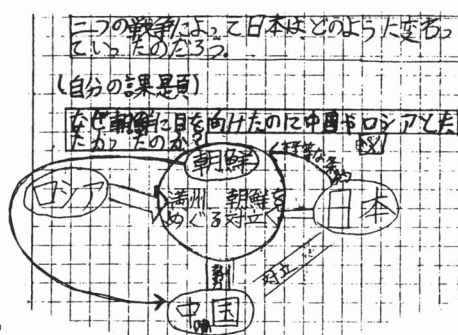 二つの戦争によって日本はどのように変わっ
ていったのだろう。
(自分の課題)
なぜ朝鮮に目を向けたのに中国やロシアとた
たかったのか?
朝鮮
ロシア
満州、朝鮮を
めぐる対立
日本
対立
中国